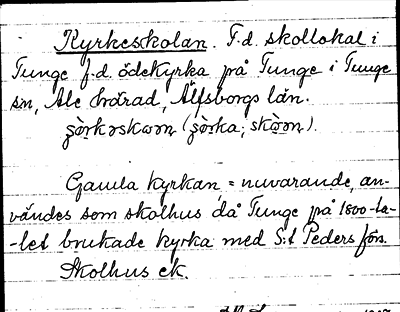 Kyrkeskolan. F.d. skollokal i
Tunge f.d. ödekyrka på Tunge i Tunge
sn, Ale härad, Älfsborgs län.
Gamla kyrkan, = nuvarande, an-
vändes som skolhus då Tunge på 1800-ta-
-let brukade kyrka med S:t Peders förs.
Skolhus ek.